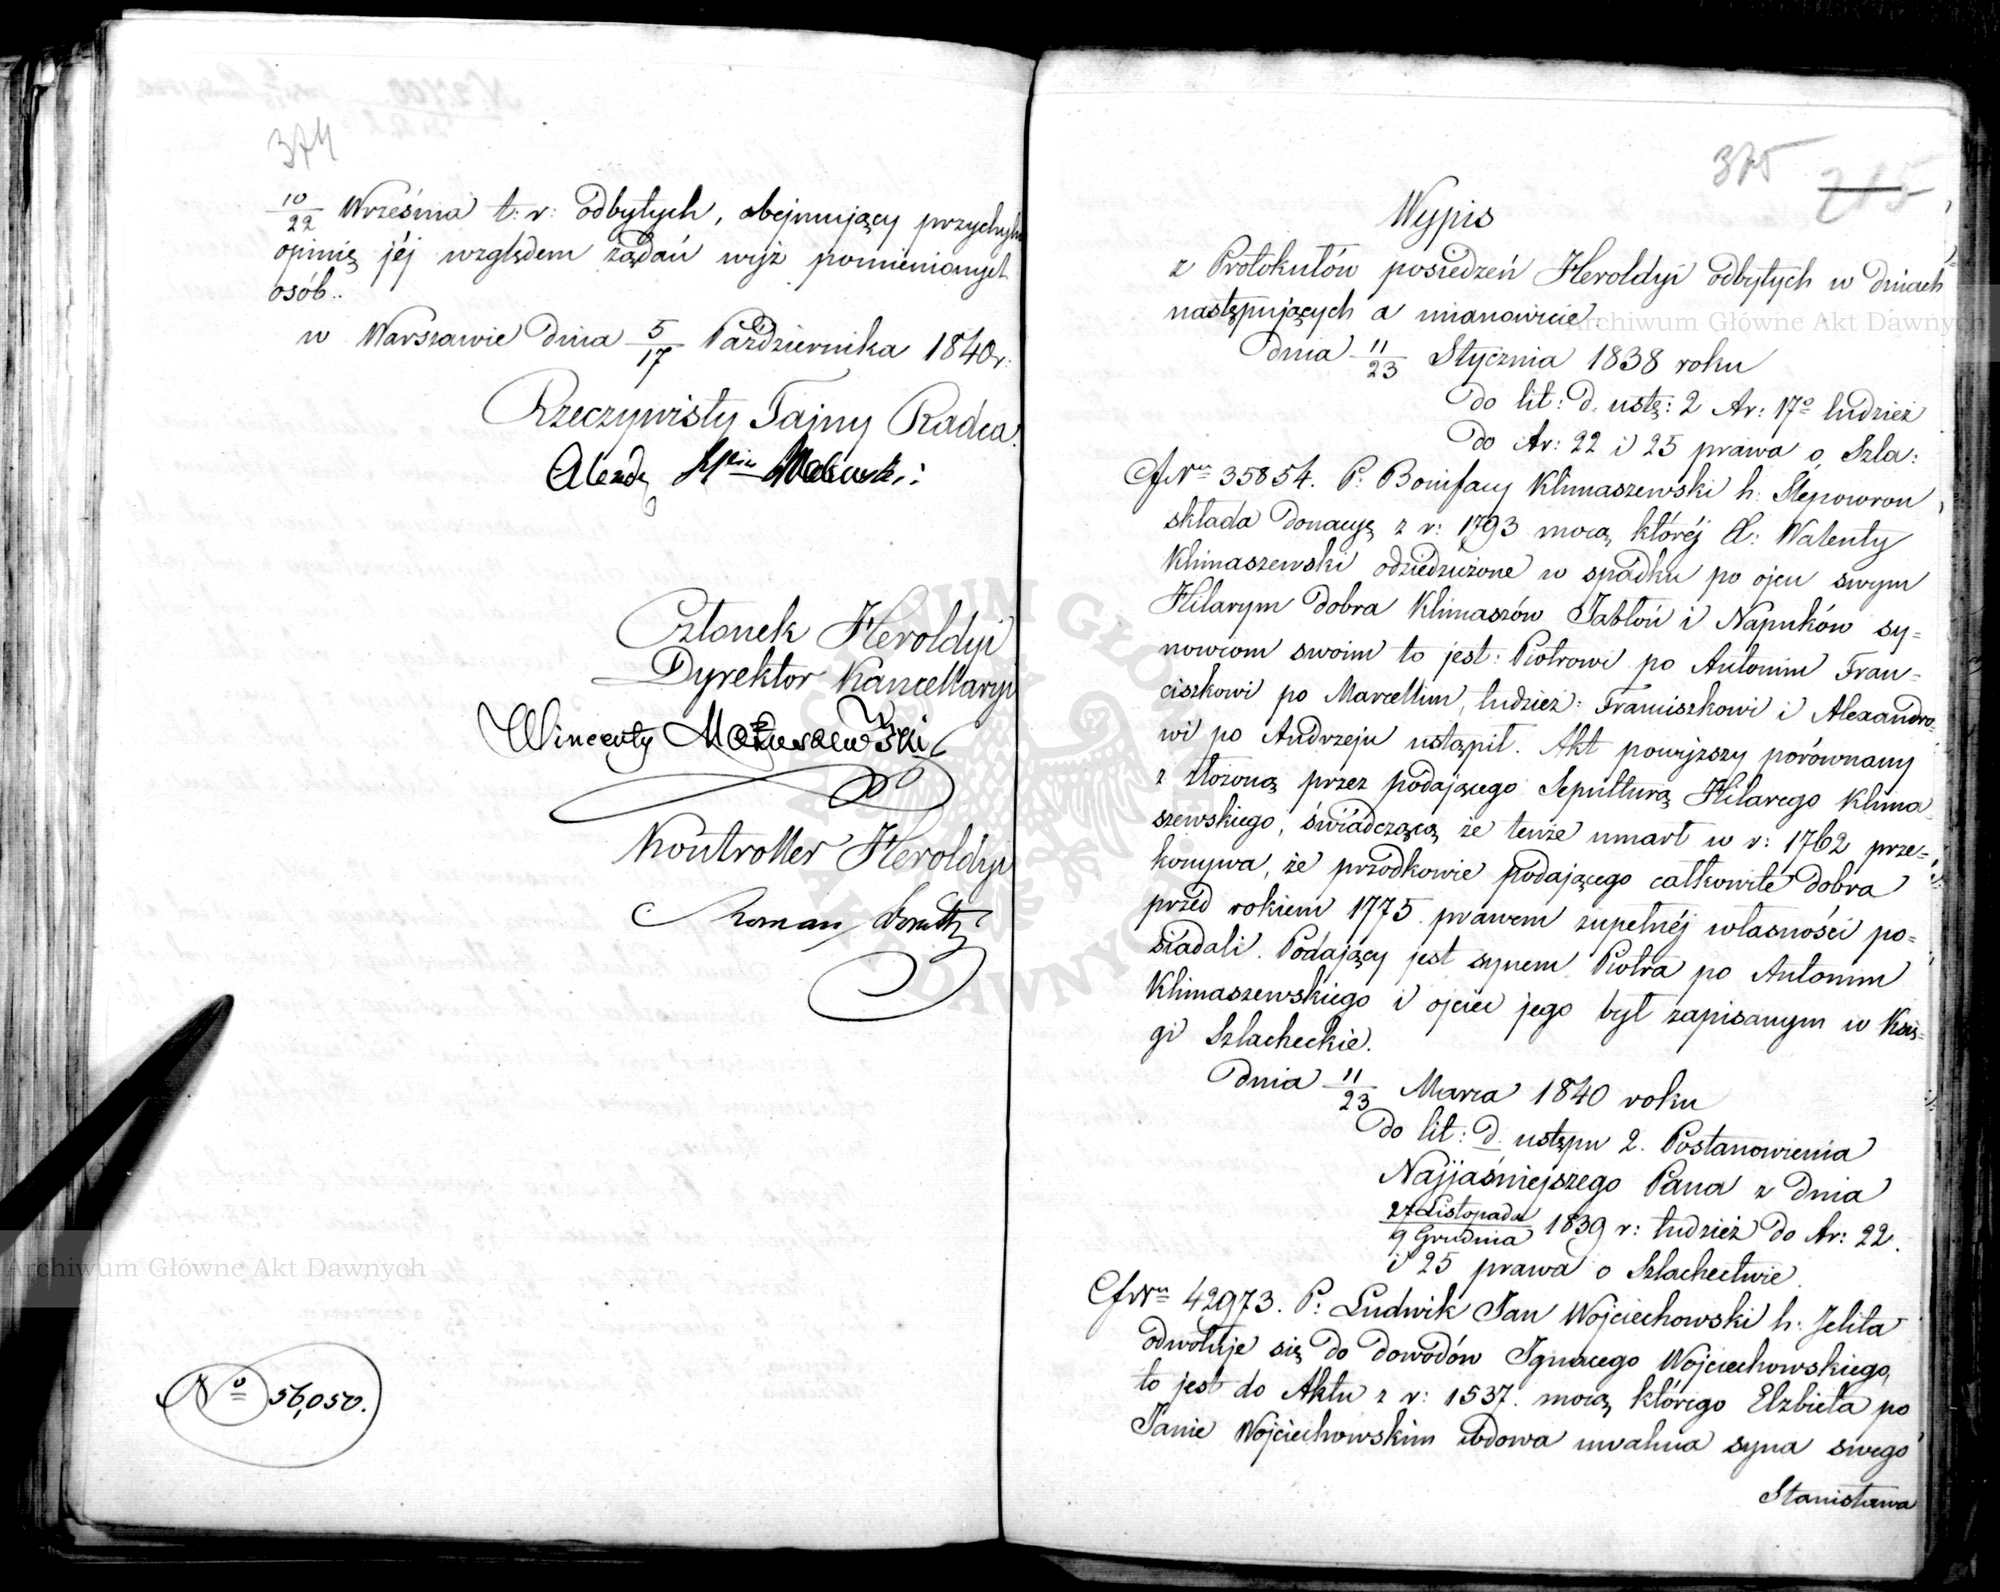 374
10/22 Września t: r: odbytych, obejmujący przychylną
opinię jéj względem żądań wyż pomienionych
osób..
w Warszawie dnia 5/17 Października 1840 r:
Rzeczywisty Tajny Radca.
Członek Heroldyi
Dyrektor Kancellaryi
Wincenty
Kontroller Heroldyi
Roman
No 56,050.
375 215
Wypis
z Protokułów posiedzeń Heroldyi odbytych w dniach
następujących a mianowicie
Dnia 11/23 Stycznia 1838 roku
Do lit: D. ustę: 2 Ar: 17o tudzież
do Ar: 22 i 25 prawa o Szla:
35854. P: Bonifacy Klimaszewski h: Ślepowron
składa Donacyę z r: 1793 mocą któréj X: Walenty
Klimaszewski odziedziczone w spadku po ojcu swym
Hilarym dobra Klimaszów Jabłoń i Napuków sy=
nowcom swoim to jest: Piotrowi po Antonim Fran=
ciszkowi po Marcellim, tudzież: Franciszkowi i Alexandro
wi po Andrzeju ustąpił. Akt powyższy porównany
z złożoną przez podającego Sepulturą Hilarego Klima
szewskiego, świadczącą że tenże umarł w r: 1762 prze=
konywa, że przodkowie podającego całkowite dobra
przed rokiem 1775 prawem zupełnéj własności po=
siadali. Podający jest synem Piotra po Antonim
Klimaszewskiego i ojciec jego był zapisanym w Księ=
gi Szlacheckie.
Dnia 11/23 Marca 1840 roku
Do lit: D. ustępu 2. Postanowienia
Najjaśniejszego Pana z dnia
27 Listopada/9 Grudnia 1839 r: tudzież do Ar: 22.
i 25 prawa o Szlachectwie
42973. P: Ludwik Jan Wojciechowski h: Jelita
odwołuje się do dowodów Ignacego Wojciechowskiego,
to jest do Aktu z r: 1537. mocą którego Elzbieta po
Janie Wojciechowskim wdowa uwalnia syna swego
Stanisława
Archiwum Główne Akt Dawnych
Archiwum Główne Akt Dawnych
ARCHIWUM GŁÓWNE AKT DAWNYCH